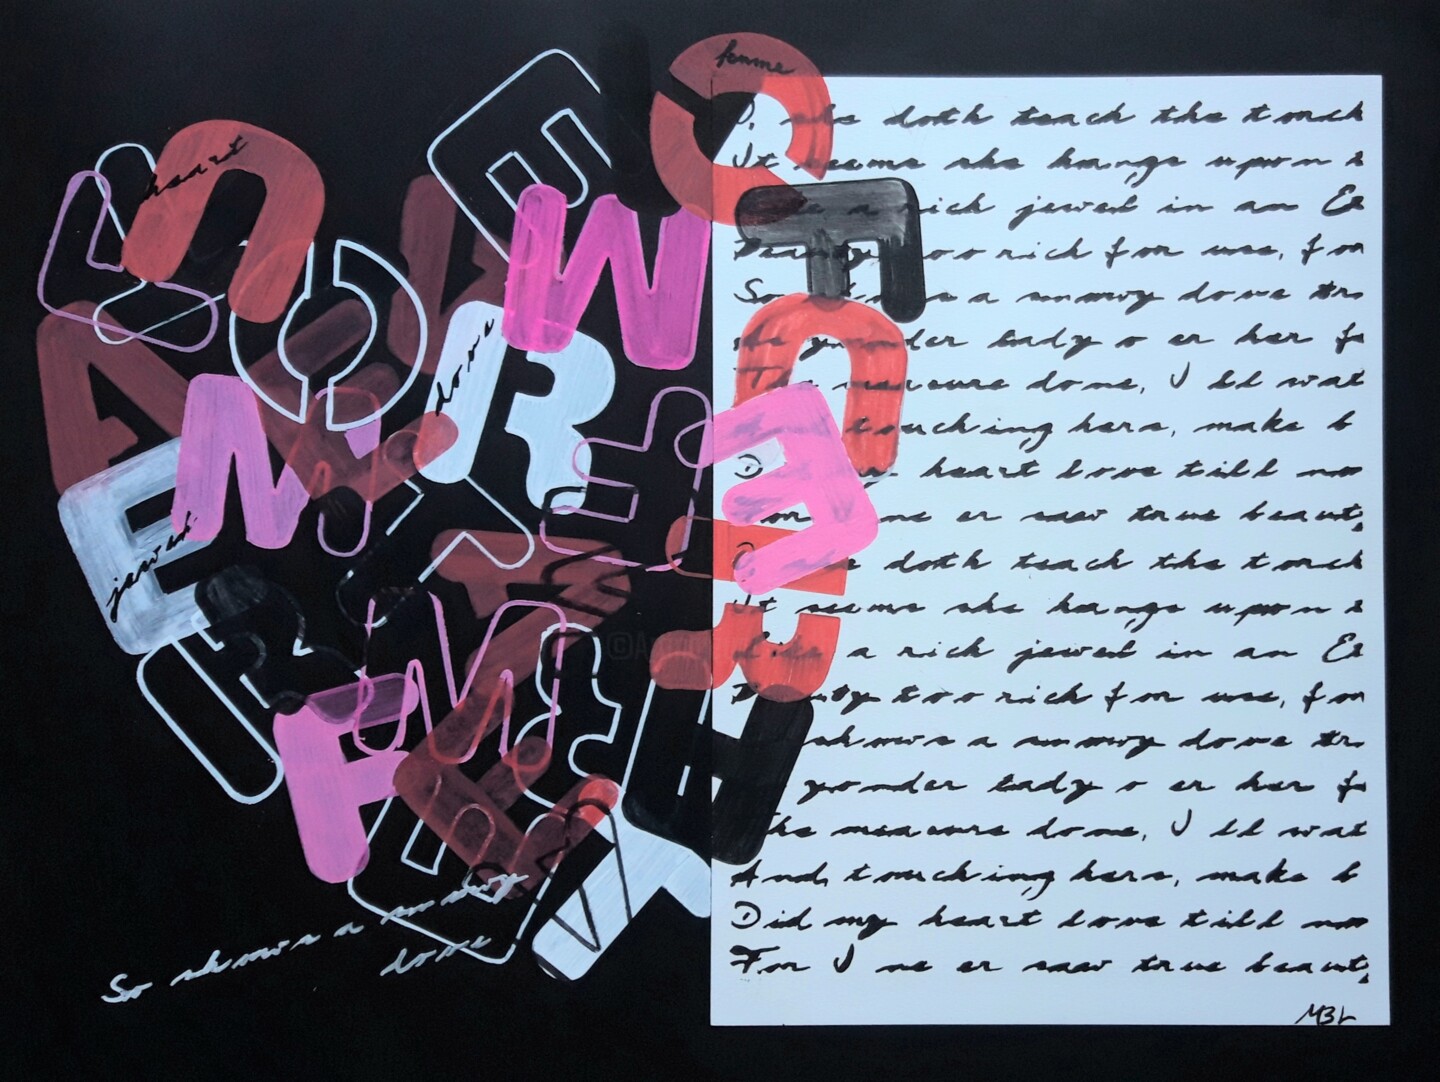 femme
heart
dove
jewel
So shows a snowy
dove
O, she doth teach the torch
It seems she hangs upon t
a rich jewel in an Et
Beauty too rich for use, for
So shows a snowy dove tr
yonder lady o er her fe
The measure done, I ll wat
touching hers, make b
heart love till now
For ne er saw true beauty
doth teach the torch
It seems she hangs upon t
Like a rich jewel in an Et
Beauty too rich for use, for
shows a snowy dove tr
yonder lady o er her fe
The measure done, I ll wat
And, touching hers, make b
Did my heart love till now
For I ne er saw true beauty
MBL